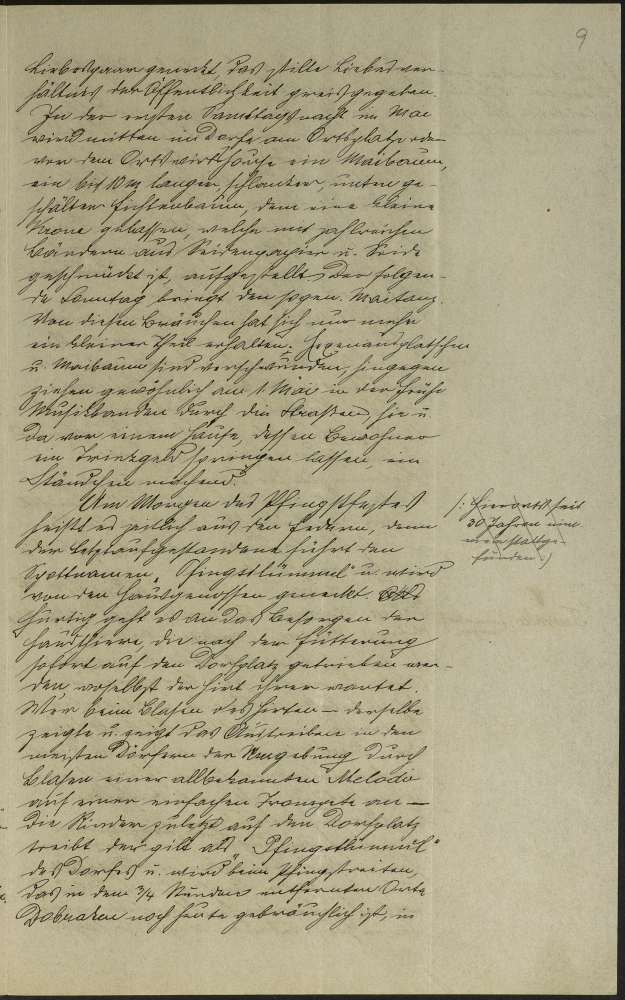 9
Liebespaar geneckt, das stille Liebesver-
hältnis der Öffentlichkeit preisgegeben.
In der ersten Samstagsnacht im Mai
wird mitten im Dorfe am Ortsplatze oder
vor dem Ortswirtshause ein Maibaum,
ein bis 10 m langer, schlanker, unten ge-
schälter Fichtenbaum, dem eine kleine
Krone gelassen, welche mit zahlreichen
Bändern aus Seidenpapier u. Seide
geschmückt ist, aufgestellt. Der folgen-
de Sonntag bringt den sogen. Maitanz.
Von diesen Bräuchen hat sich nur mehr
ein kleiner Theil erhalten.
u. Maibäume sind verschwunden, hingegen
ziehen gewöhnlich am 1. Mai in der Frühe
Musikbanden durch die Straßen, hie u.
da vor einem Hause, dessen Bewohner
ein Trinkgeld springen lassen, ein
Ständchen machend.
Am Morgen des Pfingstfestes
heißt es zeitlich aus den Federn, denn
der Letztaufgestandene führt den
Spottnamen „Pfingstlümmel" u. wird
von den Hausgenossen geneckt.
Hurtig geht es an das Besorgen der
Hausthiere, die nach der Fütterung
sofort auf den Dorfplatz getrieben wer-
den, woselbst der Hirt ihrer wartet.
Wer beim Blasen des Hirten – derselbe
zeigte u. zeigt das Austreiben in den
meisten Dörfern der Umgebung durch
Blasen einer allbekannten Melodie
auf einer einfachen Trompete an –
die Rinder zuletzt auf den Dorfplatz
treibt, der gilt als „Pfingstlümmel"
des Dorfes u. wird beim Pfingstreiten,
das in dem 3/4 Stunden entfernten Orte
Dobraken noch heute gebräuchlich ist, in
/: Hierorts seit
30 Jahren nim-
mer stattge-
funden :/